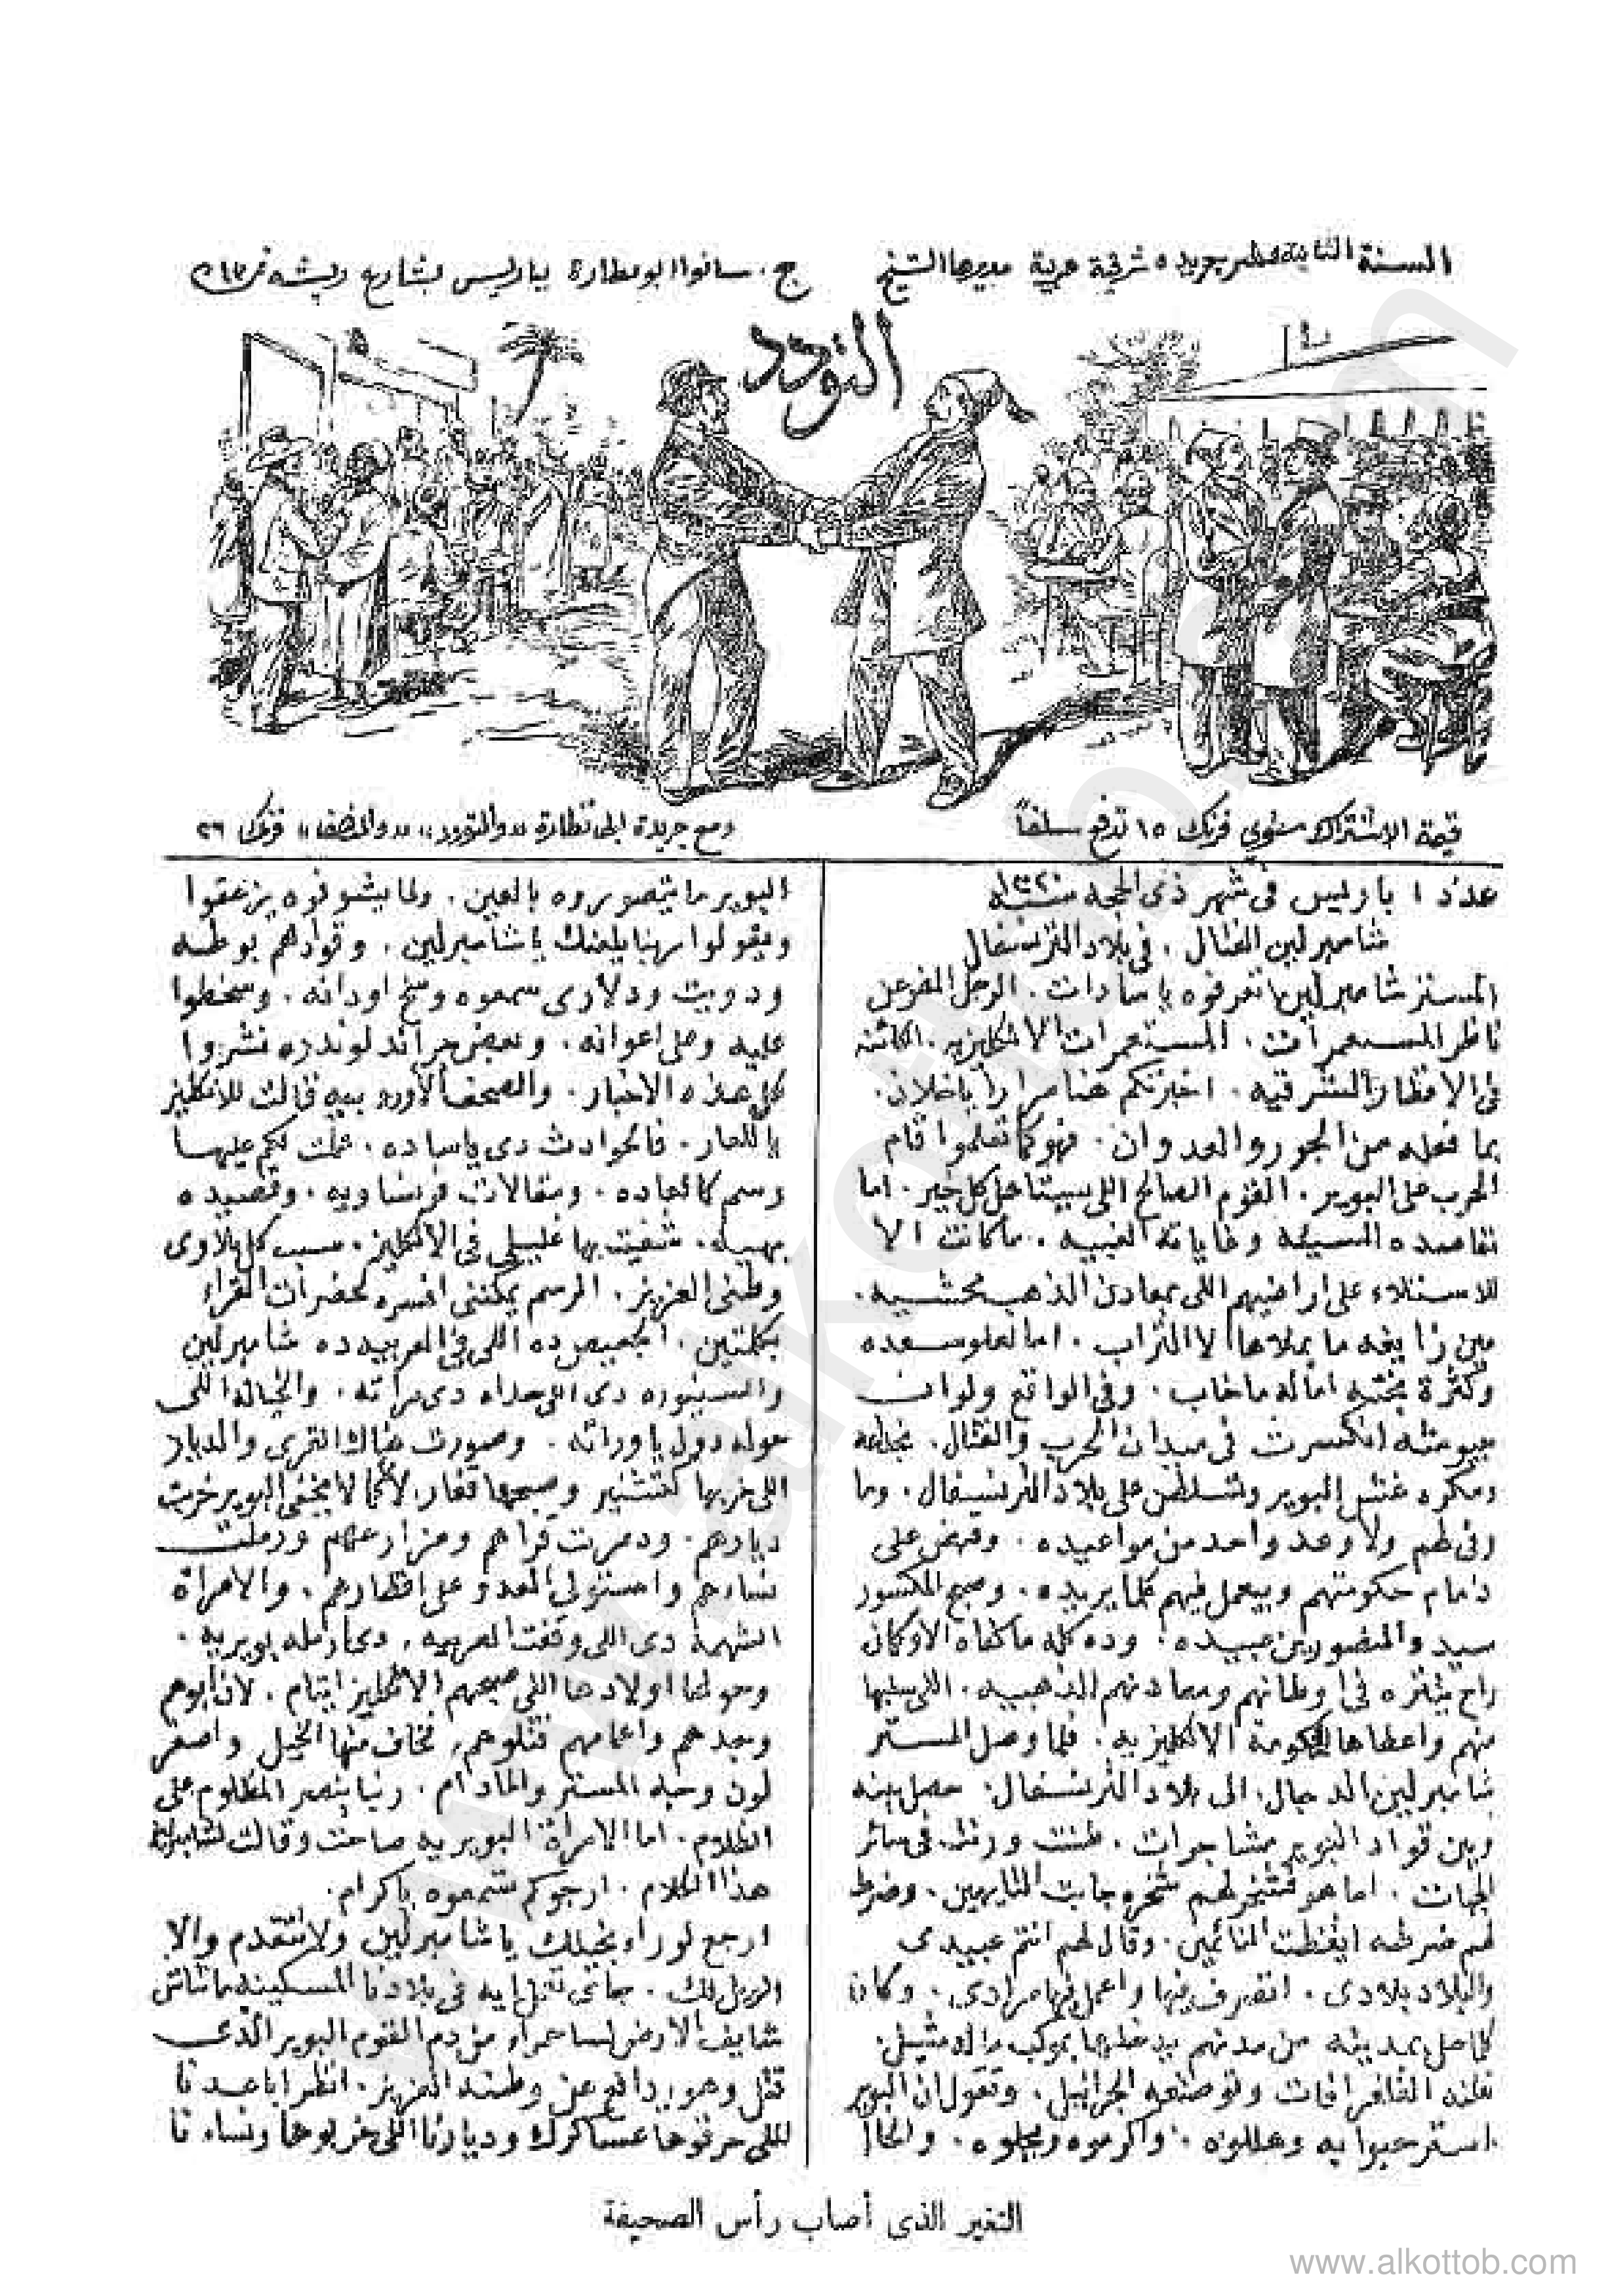 السنة الثانية عشر جريدة شرقية حرية مديرها الشيخ ج. سانوا ابو نظارة بباريس بشارع ريشه نمر
التودد
قيمة الاشتراك سنوي فرنك ١٥ تدفع سلفاً
ومع جريدة ابى نظارة «والتودد» «والمنصف» فرنك ٢٦
عدد ١ باريس فى شهر ذى الحجه سنة ١٣٢٠
شامبرلين القتال . فى بلاد الترنسفال
المستر شامبرلين تعرفوه ياسادات . الرجل
ناظر المستعمرات . المستعمرات الانكليزيه . الكائنه
فى الاقطار الشرقيه . اخبرتكم عنا مرارا ياخلان .
بما فعله من الجور والعدوان . فهو كما تعلموا قام
الحرب على البوير . القوم الصالح اللى بيستاهل كل خير . اما
مقاصده السيئه وغاياته . ما كانت الا
للاستلاء على اراضيهم اللى بمعادن الذهب محشيه .
عين زايغه ما يملاها الا التراب . اما لعلو سعده
وكثرة بخته اماله ما خاب . وفى الواقع ولو ان
جيوشه انكسرت فى ميدان الحرب والقتال .
ومكره غش البوير وتسلطن على بلاد الترنسفال . وما
وفى لهم ولا وعد واحد من مواعيده . وقبض على
زمام حكومتهم وبيعمل فيهم كلما يريده . وصبح المكسور
سيد والمنصورين عبيده . وده كله ما كفاه الا وكان
راح يتنزه فى اوطانهم ومعادنهم الذهبيه . اللى سلبها
منهم واعطاها للحكومة الانكليزيه . فلما وصل المستر
شامبرلين الدجال . الى بلاد الترنسفال . حصل بينه
وبين قواد البوير مشاجرات . طنت ورنت فى سائر
الجهات . اما هو فشخر لهم شخره جابت التايهين . وضرط
لهم ضرطه ايقظت النائمين . وقال لهم انتم عبيدى
والبلاد بلادى . اتصرف فيها واعمل فيها مرادى . وكان
كلما حل بمدينه من مدنهم يدخلها بموكب
التلغرافات وتوصفه الجرانيل . وتقول ان البوير
استرحبوا به وهللوه . واكرموه وبجلوه . والحال
البوير ما يتصوروه بالعين . ولما يشوفوه يزعقوا
ويقولوا ربنا يلعنك يا شامبرلين . وقوادهم بوطه
ودويت ودلارى سمعوه وسخ اودانه . وسخطوا
عليه وعلى اعوانه . وبعض جرائد لوندره نشروا
كل هذه الاخبار . والصحف الاوروبيه قالت للانكليز
يا للعار . فالحوادث دى ياساده . عملت لكم عليها
رسم كالعاده . ومقالات فرنساويه . وقصيده
بهيه . شفيت بها غليلى فى الانكليز . سبب كل بلاوى
وطنى العزيز . الرسم يمكننى افسره لحضرات القراء
بكلمتين . الجعيص ده اللى فى العربيه ده شامبرلين
والسنيوره دى اللى حداه دى مراته . والخياله اللى
حوله دول ياوراته . وصورت هناك القرى والديار
اللى خربها كتشنير وصبحها قفار . لانه كما لا يخفى البوير خربت
ديارهم . ودمرت قراهم ومزارعهم ورملت
نساءهم واستولى العدو على اقطارهم . والامرأة
الشهمة دى اللى وقفت العربيه . دى ارمله بويريه .
وحولها اولادها اللى صبحهم الانكليز ايتام . لان ابوهم
وجدهم واعمامهم قتلوهم . تخاف منها الخيل واصفر
لون وجه المستر والمادام . ربنا ينصر المظلوم على
الظلام . اما الامرأة البويريه صاحت وقالت لشامبرلين
هذا الكلام . ارجوكم تسمعوه ياكرام .
ارجع لوراء بخيلك يا شامبرلين ولا تتقدم والا
الويل لك . جاى تعمل ايه فى بلادنا المسكينه ماتاش
شايف الارض لسا حمراء من دم القوم البوير الذى
قتل وهو يدافع عن وطنه العزيز . انظر اباعدنا
اللى حرقوها عساكرك وديارنا اللى خربوها ونساءنا
التغير الذى أصاب رأس الصحيفة
www.alkottob.com